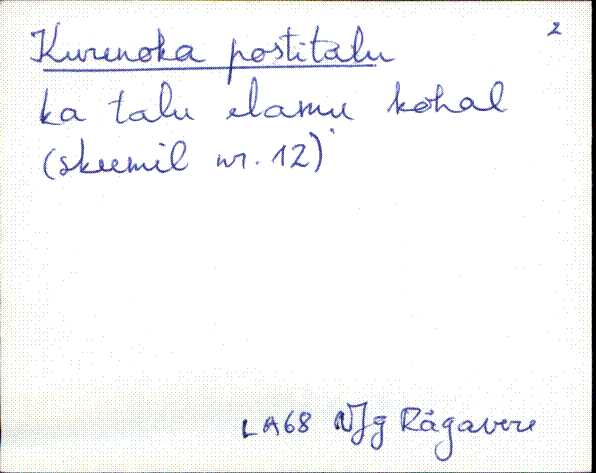 2
Kurenoka postitalu
ka talu elamu kohal
(skeemil nr. 12)
LA68 NJg Rägavere